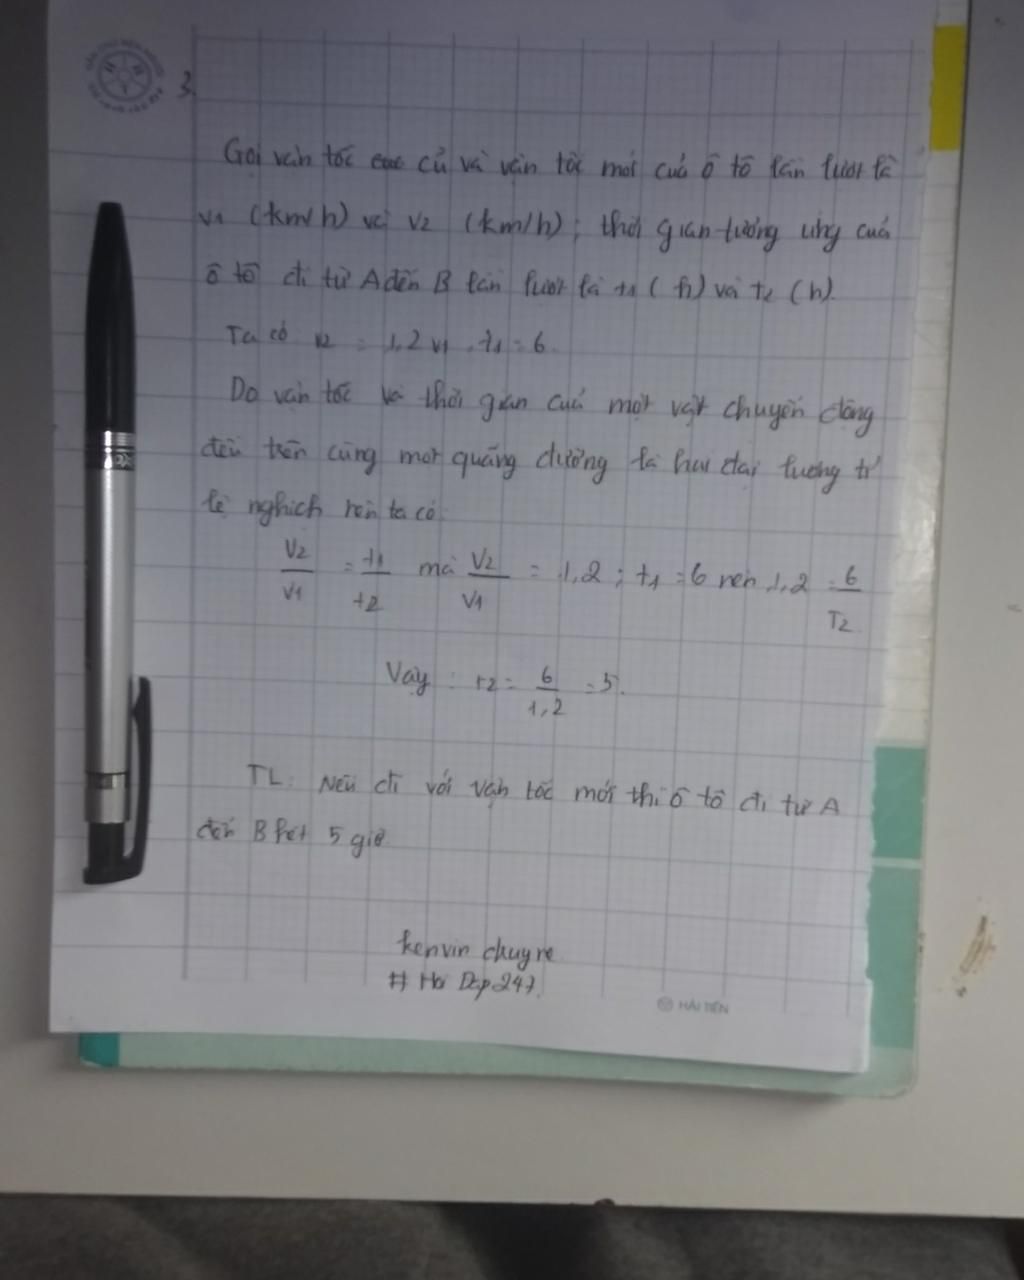 3.
Gọi vận tốc củ và vận tốc mới của ô tô lần lượt là
v1 (km/h) và v2 (km/h); thời gian tương ứng của
ô tô đi từ A đến B lần lượt là t1 (h) và t2 (h).
Ta có v2 = 1,2 v1, t1 = 6.
Do vận tốc và thời gian của một vật chuyển động
đều trên cùng một quãng đường là hai đại lượng tỉ
lệ nghịch nên ta có:
V2/V1 = t1/t2 mà V2/V1 = 1,2 ; t1 = 6 nên 1,2 = 6/T2.
Vậy : t2 = 6/1,2 = 5.
TL: Nếu đi với vận tốc mới thì ô tô đi từ A
đến B hết 5 giờ.
kenvin chuyre
# Hoi Dap 247.
HẢI TIẾN